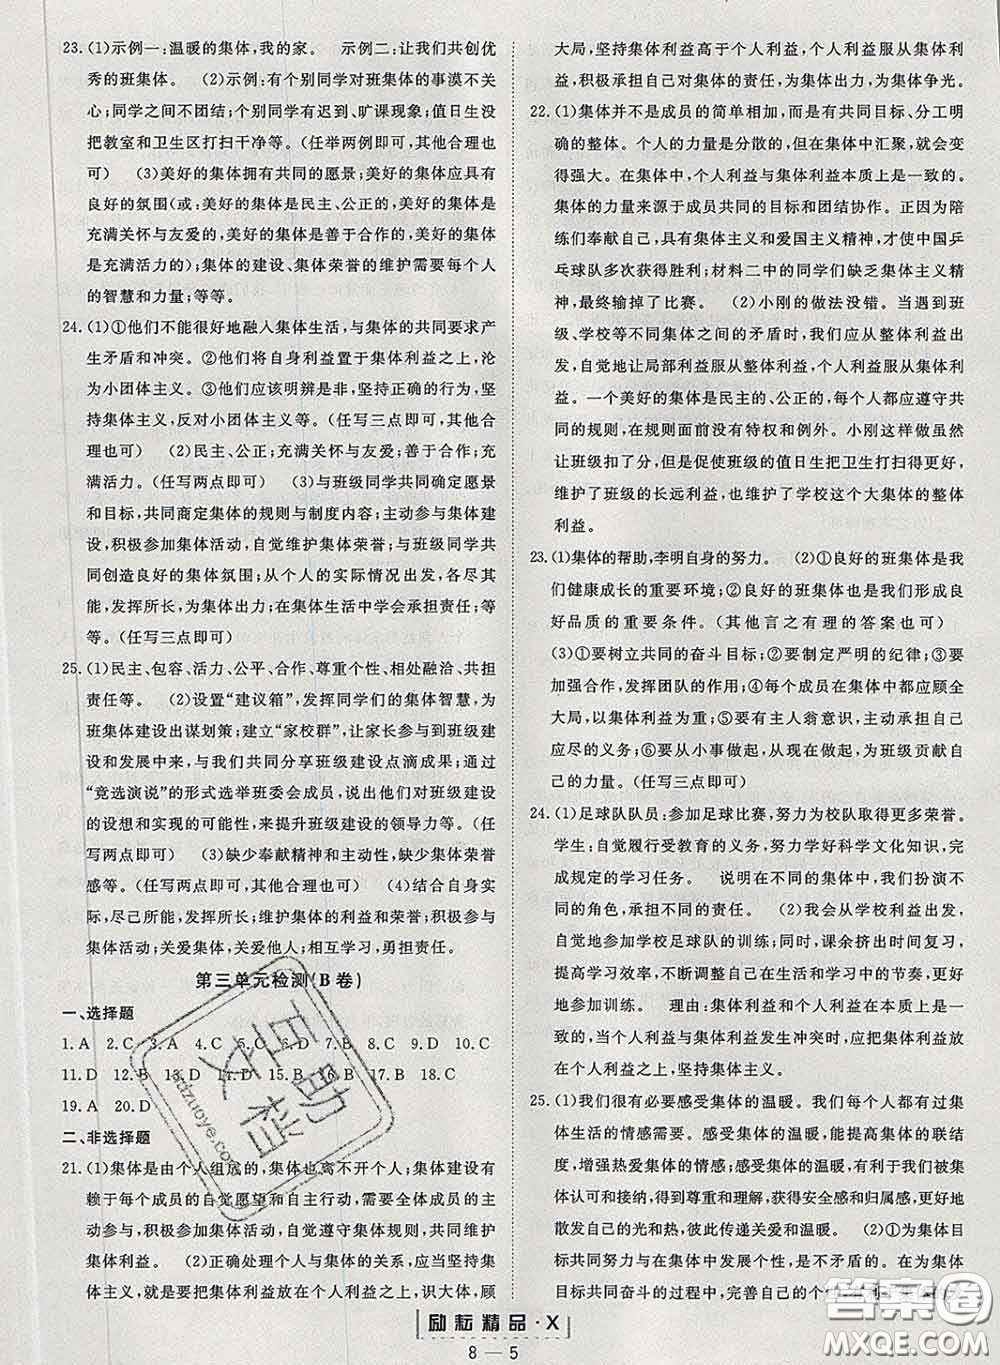 23.(1)示例一:温暖的集体,我的家。 示例二:让我们共创优
秀的班集体。 (2)示例:有个别同学对班集体的事漠不关
心;同学之间不团结;个别同学有迟到、旷课现象;值日生没
把教室和卫生区打扫干净等。(任举两例即可,其他合理也
可) (3)美好的集体拥有共同的愿景;美好的集体应具有
良好的氛围(或:美好的集体是民主、公正的,美好的集体是
充满关怀与友爱的,美好的集体是善于合作的,美好的集体
是充满活力的);集体的建设、集体荣誉的维护需要每个人
的智慧和力量;等等。
24.(1)①他们不能很好地融入集体生活,与集体的共同要求产
生矛盾和冲突。②他们将自身利益置于集体利益之上,沦
为小团体主义。③他们应该明辨是非,坚持正确的行为,坚
持集体主义,反对小团体主义等。(任写三点即可,其他合
理也可) (2)民主、公正;充满关怀与友爱;善于合作;充
满活力。(任写两点即可) (3)与班级同学共同确定愿景
和目标,共同商定集体的规则与制度内容;主动参与集体建
设,积极参加集体活动,自觉维护集体荣誉;与班级同学共
同创造良好的集体氛围;从个人的实际情况出发,各尽其
能,发挥所长,为集体出力;在集体生活中学会承担责任;等
等。(任写三点即可)
25.(1)民主、包容、活力、公平、合作、尊重个性、相处融洽、共担
责任等。 (2)设置“建议箱”,发挥同学们的集体智慧,为
班集体建设出谋划策;建立“家校群”,让家长参与到班级建
设和发展中来,与我们共同分享班级建设点滴成果;通过
“竞选演说”的形式选举班委会成员,说出他们对班级建设
的设想和实现的可能性,来提升班级建设的领导力等。(任
写两点即可) (3)缺少奉献精神和主动性,缺少集体荣誉
感等。(任写两点即可,其他合理也可) (4)结合自身实
际,尽己所能,发挥所长;维护集体的利益和荣誉;积极参与
集体活动;关爱集体,关爱他人;相互学习,勇担责任。
第三单元检测(B卷)
一、选择题
1.A 2.C 3.A 4.C 5.C 6.D 7.B 8.C 9.D 10.C
11.D 12.B 13.D 14.D 15.D 16.B 17.B 18.C
19.A 20.D
二、非选择题
21.(1)集体是由个人组成的,集体也离不开个人;集体建设有
赖于每个成员的自觉愿望和自主行动,需要全体成员的主
动参与,积极参加集体活动,自觉遵守集体规则,共同维护
集体利益。 (2)正确处理个人与集体的关系,应当坚持集
体主义,就是要把集体利益放在个人利益之上,识大体,顾
大局,坚持集体利益高于个人利益,个人利益服从集体利
益,积极承担自己对集体的责任,为集体出力、为集体争光。
22.(1)集体并不是成员的简单相加,而是有共同目标、分工明
确的整体。个人的力量是分散的,但在集体中汇聚,就会变
得强大。在集体中,个人利益与集体利益本质上是一致的。
集体的力量来源于成员共同的目标和团结协作。正因为陪
练们奉献自己,具有集体主义和爱国主义精神,才使中国乒
乓球队多次获得胜利;材料二中的同学们缺乏集体主义精
神,最终输掉了比赛。 (2)小刚的做法没错。当遇到班
级、学校等不同集体之间的矛盾时,我们应从整体利益出
发,自觉地让局部利益服从整体利益,个人利益服从集体利
益。一个美好的集体是民主的、公正的,每个人都应遵守共
同的规则,在规则面前没有特权和例外。小刚这样做虽然
让班级扣了分,但是促使班级的值日生把卫生打扫得更好,
维护了班级的长远利益,也维护了学校这个大集体的整体
利益。
23.(1)集体的帮助,李明自身的努力。 (2)①良好的班集体是我
们健康成长的重要环境;②良好的班集体也是我们形成良
好品质的重要条件。(其他言之有理的答案也可)
(3)①要树立共同的奋斗目标;②要制定严明的纪律;③要
加强合作,发挥团队的作用;④每个成员在集体中都应顾全
大局,以集体利益为重;⑤要有主人翁意识,承担自己
应尽的义务;⑥要从小事做起,从现在做起,为班级贡献自
己的力量。(任写三点即可)
24.(1)足球队队员:参加足球比赛,努力为校队取得更多荣誉。
学生:自觉履行受教育的义务,努力学好科学文化知识,完
成规定的学习任务。 说明在不同的集体中,我们扮演不
同的角色,承担不同的责任。 (2)我会从学校利益出发,
自觉地参加学校足球队的训练;同时,课余挤出时间复习,
提高学习效率,不断提高自己适应集体生活中的节奏,更加
自如地参加训练。 理由:集体利益和个人利益在本质上是一
致的,当个人利益与集体利益发生冲突时,应把集体利益放在个
人利益之上,坚持集体主义。
25.(1)我们很有必要感受集体的温暖。我们每个人都有过集
体生活的情感需要。感受集体的温暖,有利于集体的联结
度,增强热爱集体的情感;感受集体的温暖,有利于我们被
认可和接纳,得到尊重和理解,获得安全感和归属感,更好地
散发自己的光和热,彼此传递关爱和温暖。 (2)①为集体目
标共同努力与在集体中发展个性,是不矛盾的。②在为集体
目标共同奋斗的过程中,完善自己
励耘精品·X
8—5
答案圈
MXQE.COM